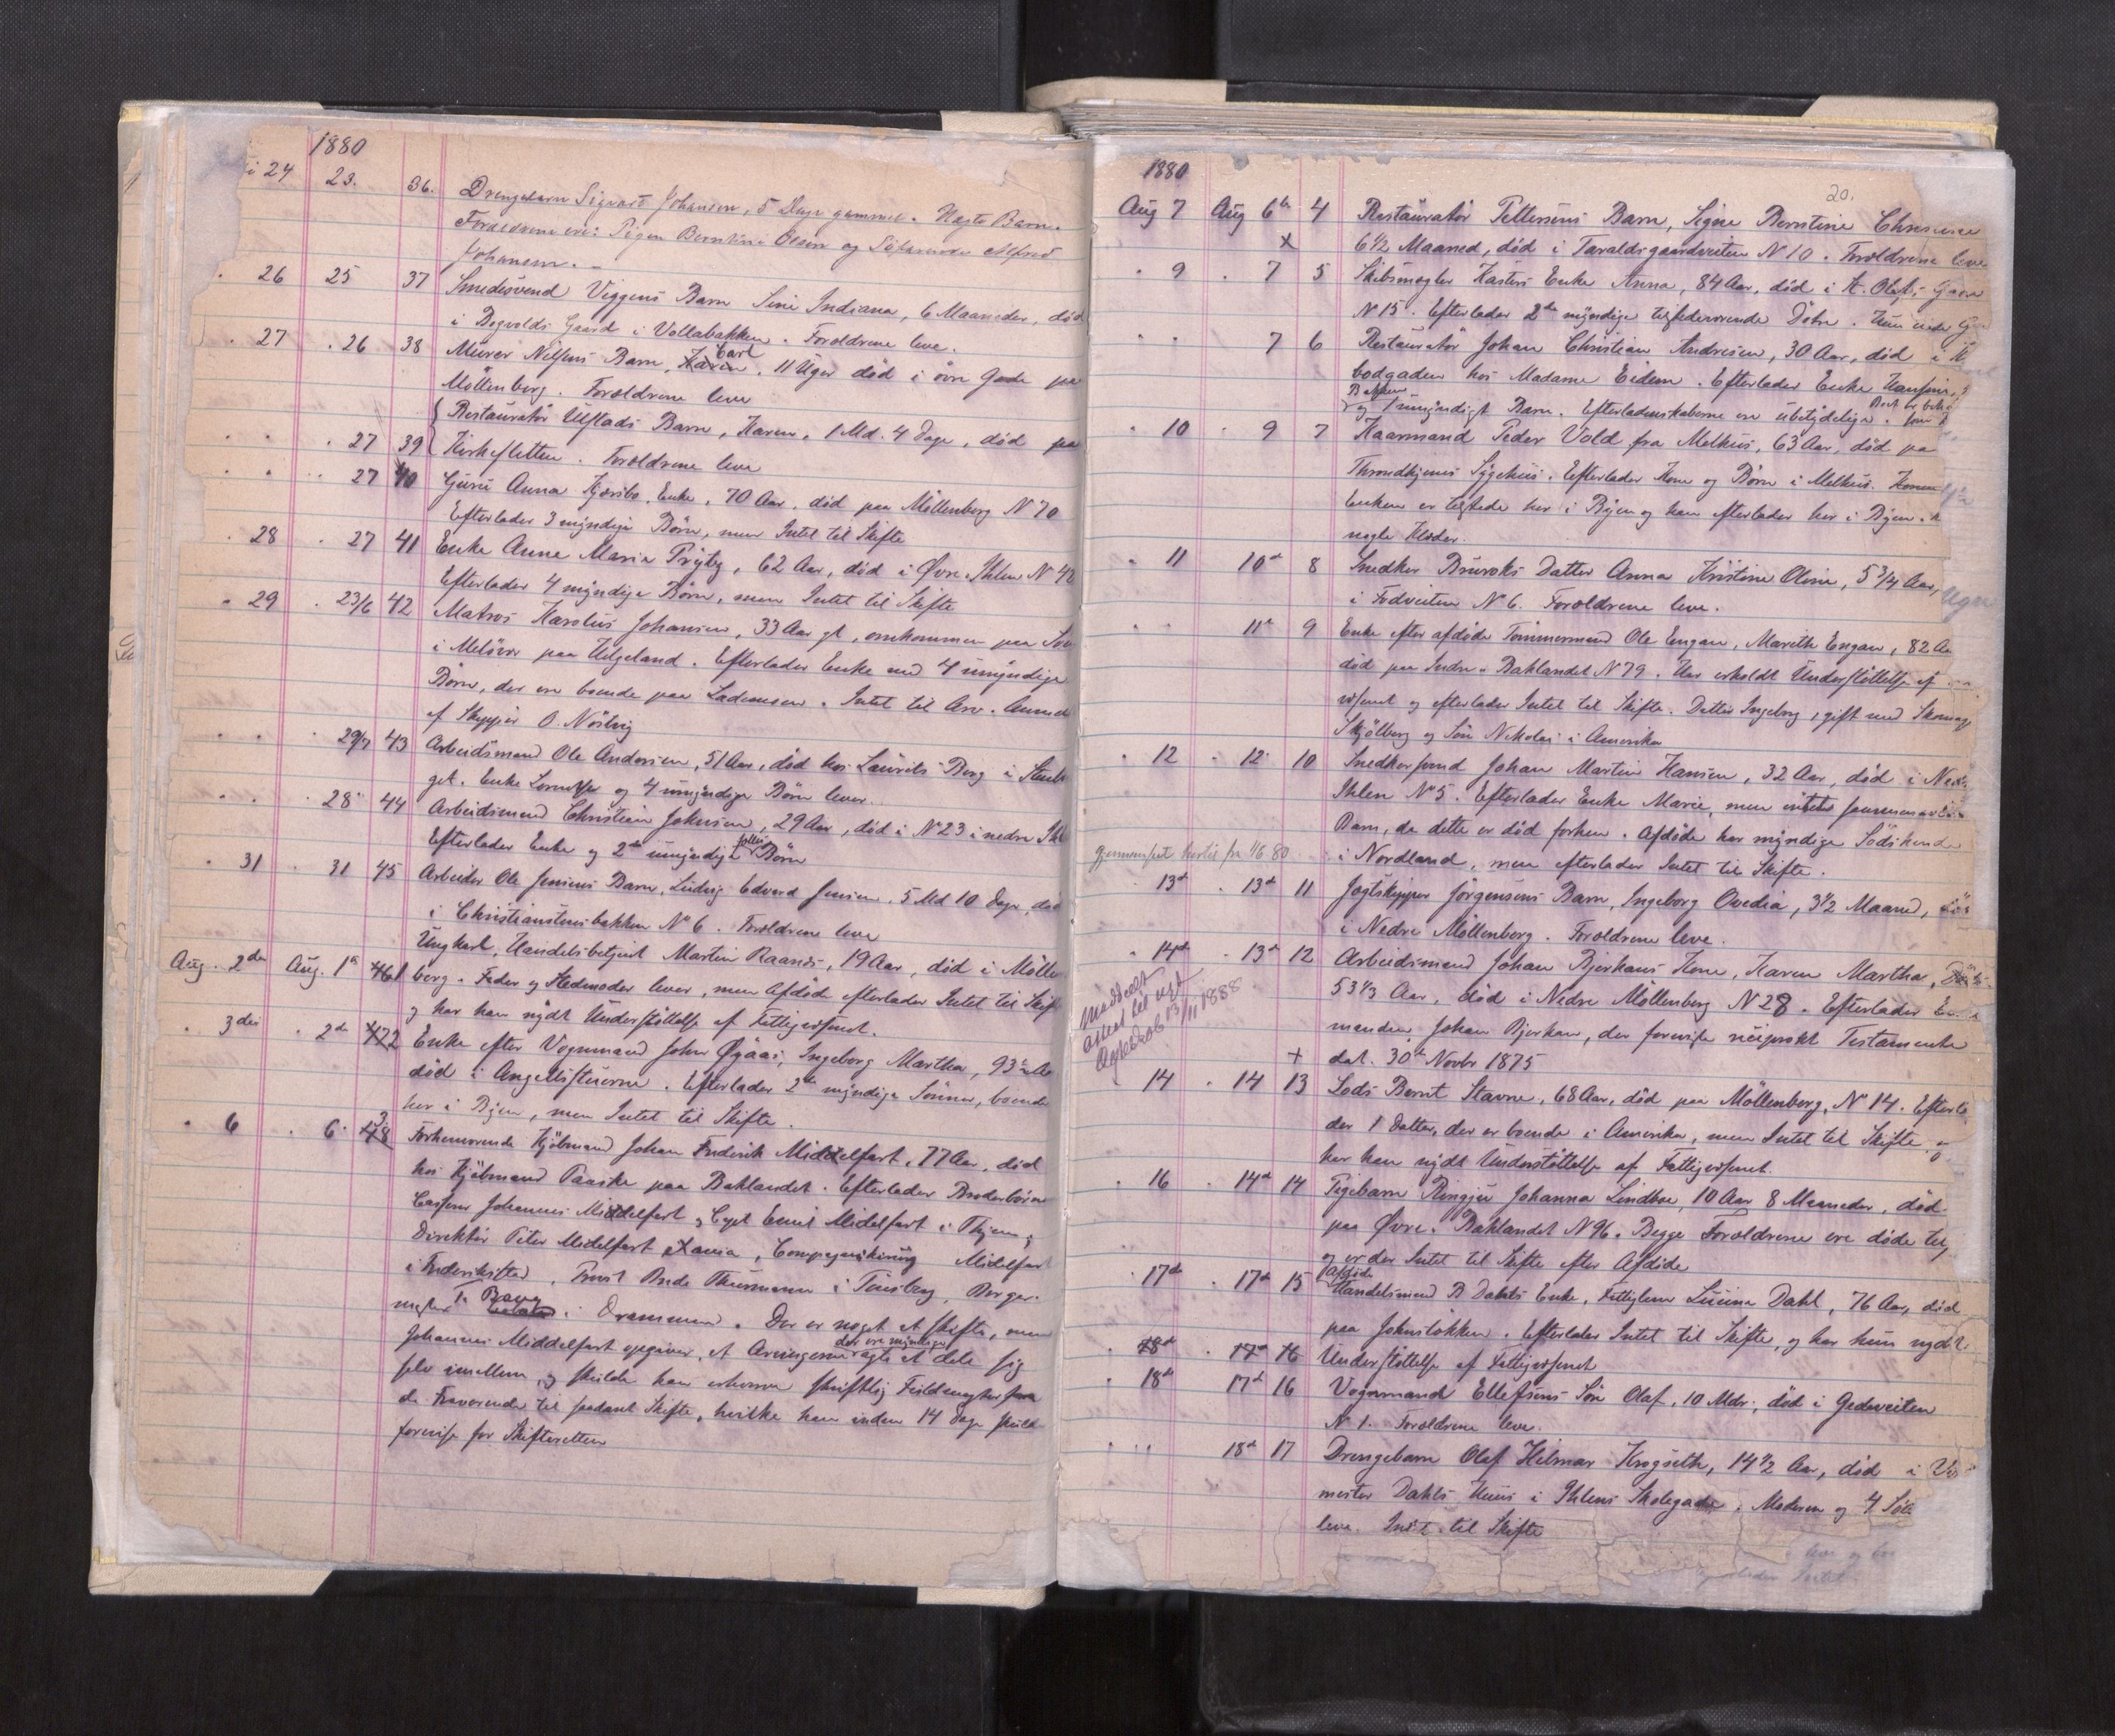 1880
24 23. 36. Drengebarn Sigvart Johansen, 5 Dage gammel. Uægte Barn.
Forældrene ere: Pigen Berntine Olsen og Søfarende Alfred
Johansen.
26 25 37 Smedesvend Viggens Barn Sine Indiana, 6 Maaneder, død
i Bogvolds Gaard i Vollabakken. Forældrene leve.
27 26 38 Murer Nilsens Barn, Karen Carl, 11 Uger død i övre Gade paa
Möllenberg. Forældrene leve
Restauratör Ulstads Barn, Karen, 1 Md. 4 Dage, død paa
27 39 Kirkesletten. Forældrene leve
27 40 Guru Anna Kjøsibo, Enke, 70 Aar, død paa Möllenberg N 70
Efterlader 3 myndige Börn, men Intet til Skifte
28 27 41 Enke Anne Maria Pryty, 62 Aar, død i Øvre Ihlen N 48
Efterlader 4 myndige Börn, men Intet til Skifte
29 23/6 42 Matros Karolius Johansen, 33 Aar gl, omkommen paa Søen
i Melövær paa Helgeland. Efterlader Enke med 4 umyndige
Börn, der ere boende paa Lademoen. Intet til Arv. Anmeldt
af Skypper O. Nöstvig
29/7 43 Arbeidsmand Ole Andersen, 51 Aar, død hos Laurits Berg i Steenber
get. Enke Lornelse og 4 umyndige Börn lever.
28 44 Arbeidsmand Christian Johnsen, 29 Aar, død i N 23 i nedre Ihlen
Efterlader Enke og 2de umyndige fælles Börn
31 31 45 Arbeider Ole Jensens Barn, Ludvig Edvard Jensen, 5 Md 10 Dage, død
i Christianstensbakken No 6. Forældrene leve
Ungkarl, Handelsbetjent Martin Raanes, 19 Aar, død i Möllen
Aug. 2den Aug. 1ste 46 1 berg. Fader og Stedmoder lever, men Afdøde efterlader Intet til Skifte
og har han nydt Understöttelse af Fattigvæsenet.
3die 2den 47 2 Enke efter Vognmand John Øyaas, Ingeborg Martha, 93 Aar
død i Angellstuerne. Efterlader 2de myndige Sönner, boende
her i Byen, men Intet til Skifte.
6 6 48 3 Forhenværende Kjöbmand Johan Frederik Middelfart, 77 Aar, død
hos Kjöbmand Paaske paa Baklandet. Efterlader Broderbörn
Casserer Johannes Middelfart, Capt Emil Midelfart i Thjem,
Direktör Peter Midelfart Xania, Compagnikirurg Midelfart
i Frederikstad, Frue Bude Thurmann i Tönsberg, Borger-
mester Bang i Drammen. Der er noget at skifte, men
Johannes Middelfart opgiver, at Arvingerne der ere myndige agte at dele sig
selv imellem, og skulde han erhverve skriftlig Fuldmagter fra
de Fraværende til saadant Skifte, hvilke han inden 14 Dage skulde
forevise for Skifteretten
20.
1880
Aug 7 Aug 6te 4 Restauratör Pettersens Barn, Signe Berntine Christine
x 6½ Maaned, død i Taraldsgaardveiten N 10. Forældrene leve
9 7 5 Skibsmægler Kasters Enke Anna, 84 Aar, død i St. Olafs Gade
N 15. Efterlader 2de myndige tilstedeværende Dötre.
7 6 Restauratör Johan Christian Andresen, 30 Aar, død i
bodgaden hos Madame Eidem. Efterlader Enke
og 1 umyndigt Barn. Efterladenskaberne ere ubetydelige.
10 9 7 Kaarmand Peder Vold fra Melhus, 63 Aar, død paa
Throndhjems Sygehus. Efterlader Kone og Börn i Melhus. Konen
Enken er tilstede her i Byen og han efterlader her i Byen
nogle Klæder.
11 10de 8 Snedker Bruroks Datter Anna Kristine Oline, 5 3/4 Aar,
i Fodveiten N 6. Forældrene leve.
11te 9 Enke efter afdøde Tømmermand Ole Engan, Marith Engan, 82 Aar
død paa Indre Baklandet N 79. Har erholdt Understöttelse af
væsenet og efterlader Intet til Skifte. Datter Ingeborg, gift med Skomager
Skjölberg og Sön Nikolai i Amerika
12 12 10 Snedkersvend Johan Martin Hansen, 32 Aar, død i Nedre
Ihlen No 5. Efterlader Enke Marie, men intet
Barn, da dette er død forhen. Afdøde har myndige Södskende
gjennemseet hertil fra 1/6 80 i Nordland, men efterlader Intet til Skifte.
13de 13de 11 Jagtskipper Jörgensens Barn, Ingeborg Ovedia, 3½ Maaned, død
i Nedre Möllenberg. Forældrene leve.
14de 13de 12 Arbeidsmand Johan Bjerkans Kone, Karen Martha,
53 1/3 Aar, død i Nedre Möllenberg N 28. Efterlader
manden Johan Bjerkan, der foreviste reciprokt Testamente
+ dat. 30te Novbr 1875
Meddelt
attest til
13/11 1888
14 14 13 Lods Bernt Stavne, 68 Aar, død paa Möllenberg, No 14. Efterla
der 1 Datter, der er boende i Amerika, men Intet til Skifte, og
har han nydt Understöttelse af Fattigvæsenet.
16 14de 14 Pigebarn Ringja Johanna Lindboe, 10 Aar 8 Maaneder, død
paa Øvre Baklandet N 96. Begge Forældrene ere døde
og er der Intet til Skifte efter Afdøde
17de 17de 15 Afdøde Handelsmand B Dahls Enke, Fattiglem Lusina Dahl, 76 Aar, død
paa Johnslökken. Efterlader Intet til Skifte, og har hun nydt
18de 17de 16 Understöttelse af Fattigvæsenet
18de 17de 16 Vognmand Ellefsens Sön Olaf, 10 Mdr., død i Gedeveiten
N 1. Forældrene leve.
18de 17 Drengebarn Olaf Hilmar Krogseth, 14½ Aar, død i
mester Dahls Huus i Ihlens Skolegade. Moderen og 4
leve. Intet til Skifte